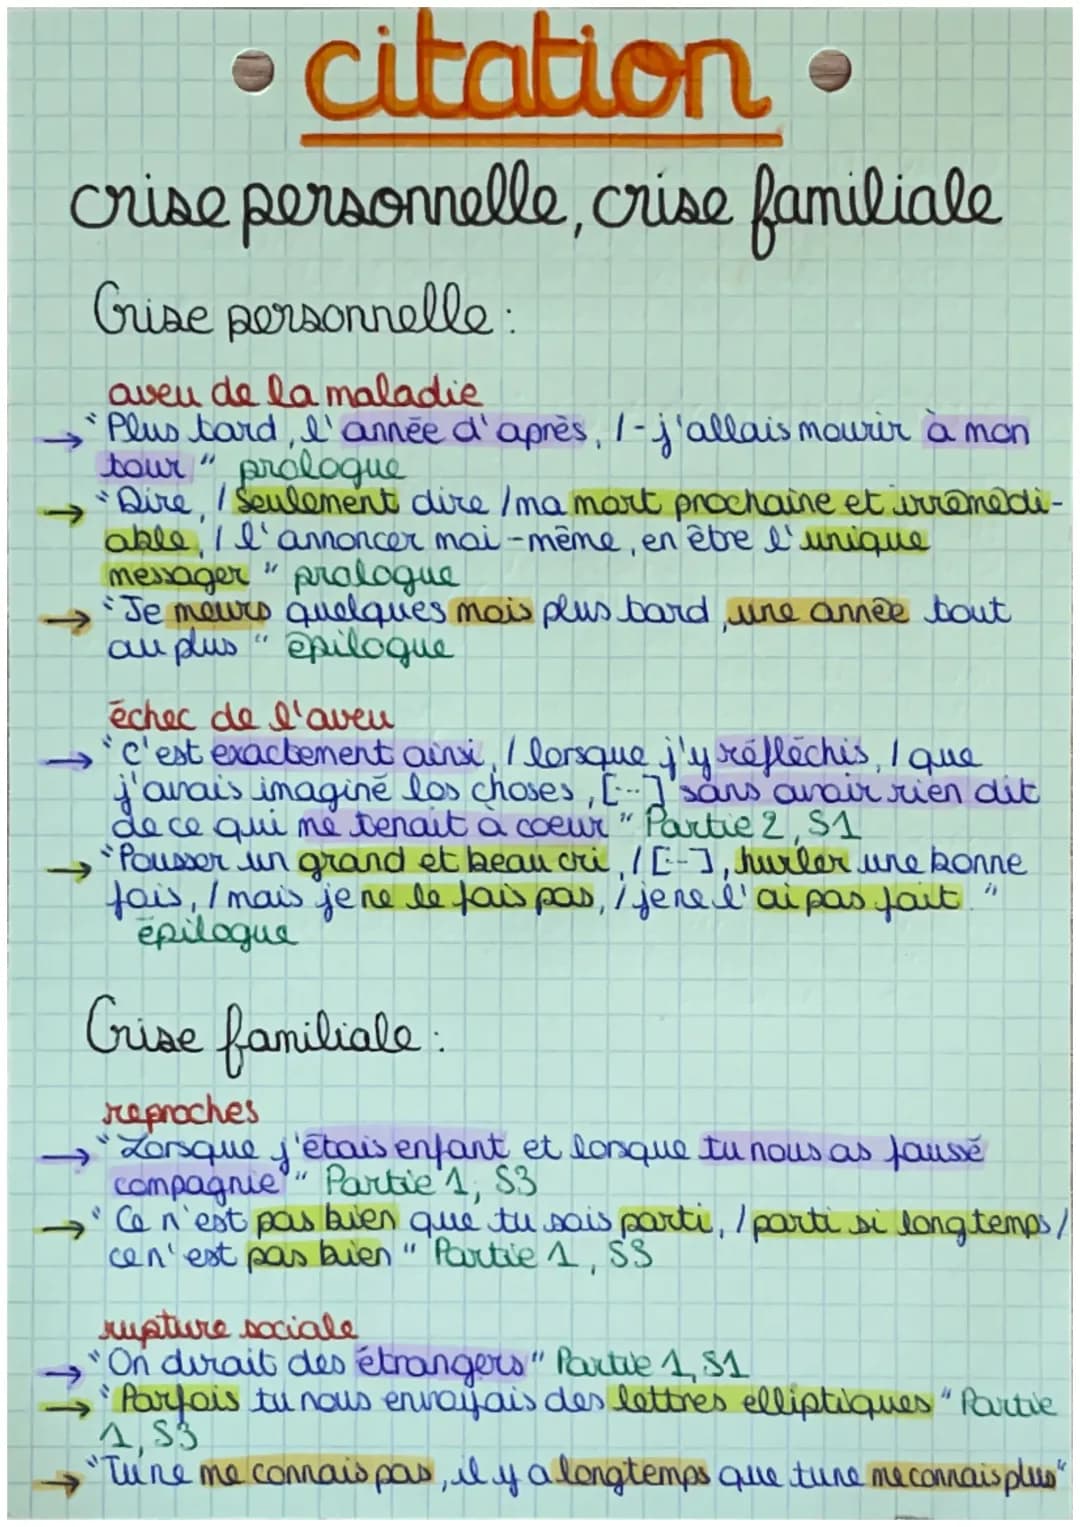 citation
crise personnelle, crise familiale
Crise personnelle :
aveu de la maladie
→ "Plus tard, l'année d'après, /- j'allais mourir à mon
tour" prologue
→ "Dire, / Seulement dire / ma mort prochaine et irrémédi-
able, / l'annoncer moi-même, en être l'unique
messager" prologue
→ "Je meurs quelques mois plus tard, une année tout
au plus" épilogue
échec de l'aveu
→ "C'est exactement ainsi, / lorsque j'y réfléchis, / que
j'avais imaginé les choses, [...] sans avoir rien dit
de ce qui me tenait à coeur" Partie 2, S1
→ "Pousser un grand et beau cri, / [...], hurler une bonne
fois, / mais je ne le fais pas, / je ne l'ai pas fait."
épilogue
Crise familiale :
reproches
→ "Lorsque j'étais enfant et lorsque tu nous as faussé
compagnie" Partie 1, S3
→ "Ce n'est pas bien que tu sois parti, / parti si longtemps /
ce n'est pas bien" Partie 1, S3
rupture sociale
→ "On dirait des étrangers" Partie 1, S1
→ "Parfois tu nous envoyais des lettres elliptiques" Partie
1, S3
→ "Tu ne me connais pas, il y a longtemps que tu ne me connais plus"